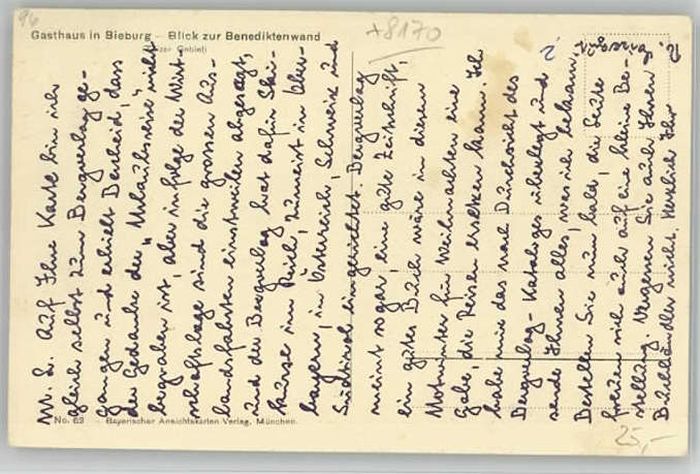 96
Gasthaus in Bieburg - Blick zur Benediktenwand
+8170
M. L. Auf Ihre Karte bin ich
gleich selbst zum Bergverlag ge-
gangen und erhielt Bescheid, dass
der Gedanke der „Urlaubsreise" nicht
begraben ist, aber infolge der Wirt-
schaftslage sind die grossen Aus-
landsfahrten einstweilen abgesagt,
und der Bergverlag hat dafür Ski-
kurse im Reich, zumeist in Ober-
bayern, in Österreich, Schweiz und
Südtirol eingerichtet. Bergverlag
meint sogar, eine gute Zeitschrift,
ein gutes Buch wäre in diesem
Notwinter für Weihnachten eine
Gabe, die Reisen ersetzen kann. Ich
habe mir das nach Durchsicht des
Bergverlag-Kataloges überlegt und
sende Ihnen alles, was ich bekam.
Bestellen Sie nun bald, die Leute
freuen sich auch auf eine kleine Be-
stellung. Vergessen Sie auch Ihren
Buchhändler nicht. Herzlich Ihr
No. 62 - Bayerischer Ansichtskarten Verlag, München.
25,-